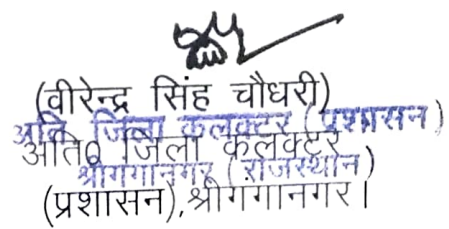 (वीरेन्द्र सिंह चौधरी)
अति जिला कलक्टर (प्रशासन)
अति0 जिला कलक्टर
श्रीगंगानगर (राजस्थान)
(प्रशासन),श्रीगगानगर।